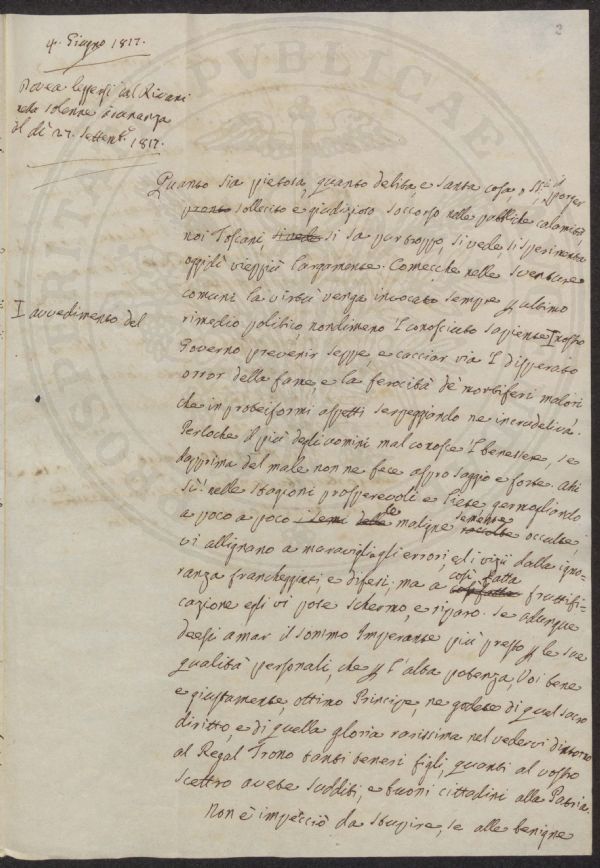 2
4. Giugno 1817.
dovea leggersi dal Rivani
nella solenne adunanza
il dì 27. Settembre 1817.
Quanto sia pietosa, quanto debita, e santa cosa, il porger
pronto sollecito e giudizioso soccorso nelle pubbliche calamità
noi Toscani, si vede si sa purtroppo, si vede, si sperimenta
oggidì vieppiù largamente. Comecchè nelle sventure
comuni la virtù venga invocata sempre p ultimo
I avvedimento del
rimedio politico, nondimeno l conosciuto sapiente I nostro
Governo prevenir seppe, e cacciar via l disperato
orror della fame, e la ferocità de' morbiferi malori
che in proteiformi aspetti serpeggiando ne incrudeliva.
Perloche il più degli uomini mal conosce l benessere, se
dapprima del male non ne fece aspro saggio e forte. Ahi
sì! nelle stagioni prosperevoli e liete germogliando
a poco a poco i semi delle le maligne semenze raccolte occulte,
vi allignano a maraviglia gli errori, ed i vizii dalla igno-
ranza francheggiati, e difesi; ma a così fatta così fatta fruttifi-
cazione egli vi pose schermo, e riparo. Se adunque
deesi amar il sommo Imperante più presto p le sue
qualità personali, che p l'alta potenza, Voi bene
e giustamente, ottimo Principe, ne godete di quel sacro
diritto, e di quella gloria rarissima nel vedervi d'intorno
al Regal Trono tanti teneri figli, quanti al vostro
scettro avete sudditi, e buoni cittadini alla Patria.
Non è imperciò da stupire, se alle benigne